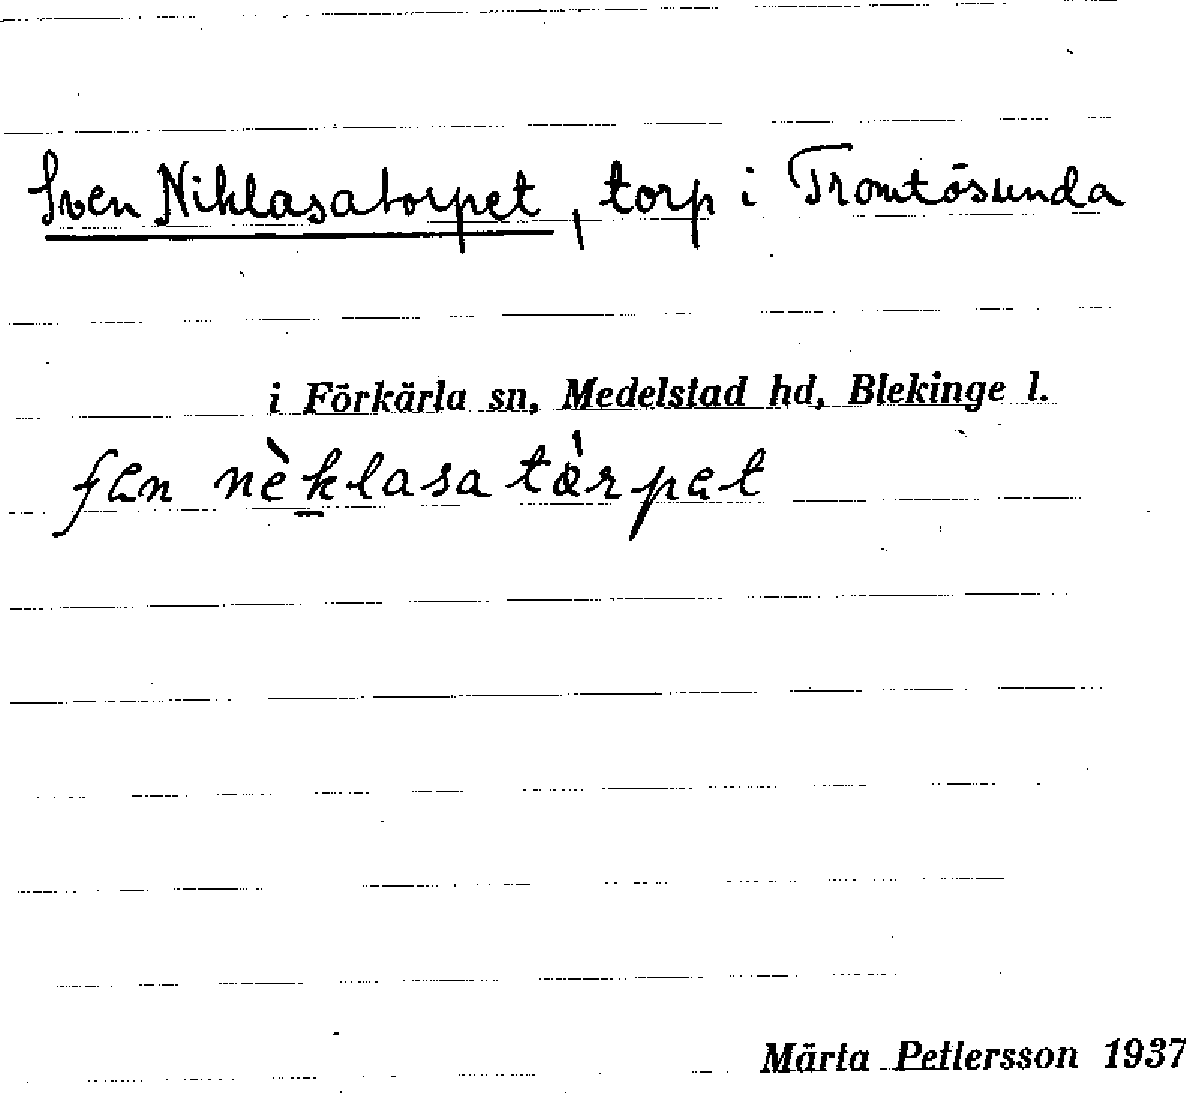 Sven Niklasatorpet, torp i Tromtösunda
i Förkärla sn, Medelstad hd, Blekinge l.
fɛn nèklasa tårpet
Märta Pettersson 1937